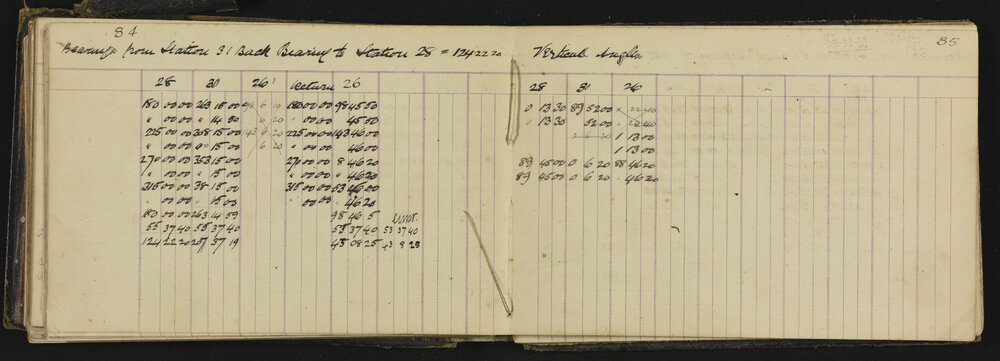 84
Bearings from Station 31 Back Bearing to Station 28 = 124 22 20
28 30 26 Return 26
180 00 00 263 15 00 98 6 20 180 00 00 98 45 50
" 00 00 " 14 30 6 20 " 00 00 45 00
225 00 00 308 15 00 143 6 20 225 00 00 143 46 00
" 00 00 " 15 00 6 20 " 00 00 46 00
270 00 00 353 15 00 270 00 00 8 46 20
" 00 00 " 15 00 " 00 00 " 46 20
315 00 00 38 15 00 315 00 00 53 46 00
" 00 00 " 15 00 " 00 00 " 46 20
180 00 00 263 14 59 98 46 5
55 37 40 55 37 40 55 37 40 53 37 40
124 22 20 207 37 19 43 08 25 43 8 25
85
Vertical Angles
28 30 26
0 13 30 89 52 00 " 22 40
0 13 30 52 00 " 22 40
0 6 20 1 13 00
1 13 00
89 45 00 0 6 20 88 46 20
89 45 00 0 6 20 " 46 20